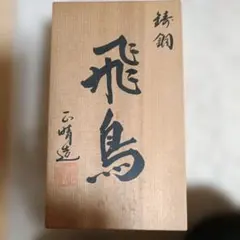 鋳銅
飛鳥
正晴造